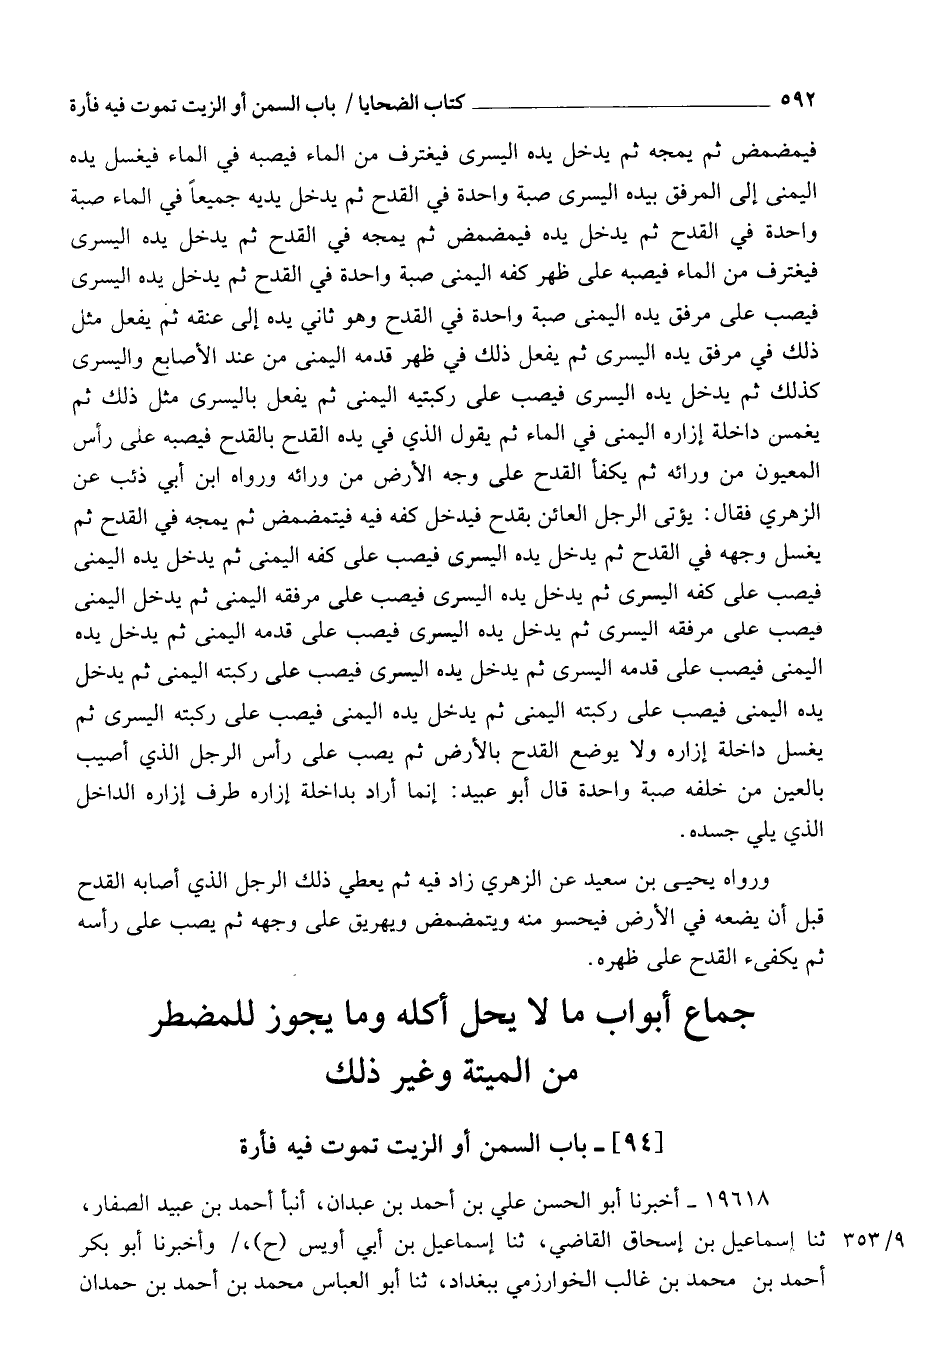 ٥٩٢ ــــــــــــــــــــــــ كتاب الضحايا / باب السمن أو الزيت تموت فيه فأرة
فيمضمض ثم يمجه ثم يدخل يده اليسرى فيغترف من الماء فيصبه في الماء فيغسل يده
اليمنى إلى المرفق بيده اليسرى صبة واحدة في القدح ثم يدخل يديه جميعاً في الماء صبة
واحدة في القدح ثم يدخل يده فيمضمض ثم يمجه في القدح ثم يدخل يده اليسرى
فيغترف من الماء فيصبه على ظهر كفه اليمنى صبة واحدة في القدح ثم يدخل يده اليسرى
فيصب على مرفق يده اليمنى صبة واحدة في القدح وهو ثاني يده إلى عنقه ثم يفعل مثل
ذلك في مرفق يده اليسرى ثم يفعل ذلك في ظهر قدمه اليمنى من عند الأصابع واليسرى
كذلك ثم يدخل يده اليسرى فيصب على ركبتيه اليمنى ثم يفعل باليسرى مثل ذلك ثم
يغمس داخلة إزاره اليمنى في الماء ثم يقول الذي في يده القدح بالقدح فيصبه على رأس
المعيون من ورائه ثم يكفأ القدح على وجه الأرض من ورائه ورواه ابن أبي ذئب عن
الزهري فقال: يؤتى الرجل العائن بقدح فيدخل كفه فيه فيتمضمض ثم يمجه في القدح ثم
يغسل وجهه في القدح ثم يدخل يده اليسرى فيصب على كفه اليمنى ثم يدخل يده اليمنى
فيصب على كفه اليسرى ثم يدخل يده اليسرى فيصب على مرفقه اليمنى ثم يدخل اليمنى
فيصب على مرفقه اليسرى ثم يدخل يده اليسرى فيصب على قدمه اليمنى ثم يدخل يده
اليمنى فيصب على قدمه اليسرى ثم يدخل يده اليسرى فيصب على ركبته اليمنى ثم يدخل
يده اليمنى فيصب على ركبته اليمنى ثم يدخل يده اليمنى فيصب على ركبته اليسرى ثم
يغسل داخلة إزاره ولا يوضع القدح بالأرض ثم يصب على رأس الرجل الذي أصيب
بالعين من خلفه صبة واحدة قال أبو عبيد: إنما أراد بداخلة إزاره طرف إزاره الداخل
الذي يلي جسده.
ورواه يحيى بن سعيد عن الزهري زاد فيه ثم يعطي ذلك الرجل الذي أصابه القدح
قبل أن يضعه في الأرض فيحسو منه ويتمضمض ويهريق على وجهه ثم يصب على رأسه
ثم يكفىء القدح على ظهره.
جماع أبواب ما لا يحل أكله وما يجوز للمضطر
من الميتة وغير ذلك
[٩٤] ـ باب السمن أو الزيت تموت فيه فأرة
١٩٦١٨ ـ أخبرنا أبو الحسن علي بن أحمد بن عبدان، أنبأ أحمد بن عبيد الصفار،
٣٥٣/٩ ثنا إسماعيل بن إسحاق القاضي، ثنا إسماعيل بن أبي أويس (ح)،/ وأخبرنا أبو بكر
أحمد بن محمد بن غالب الخوارزمي ببغداد، ثنا أبو العباس محمد بن أحمد بن حمدان